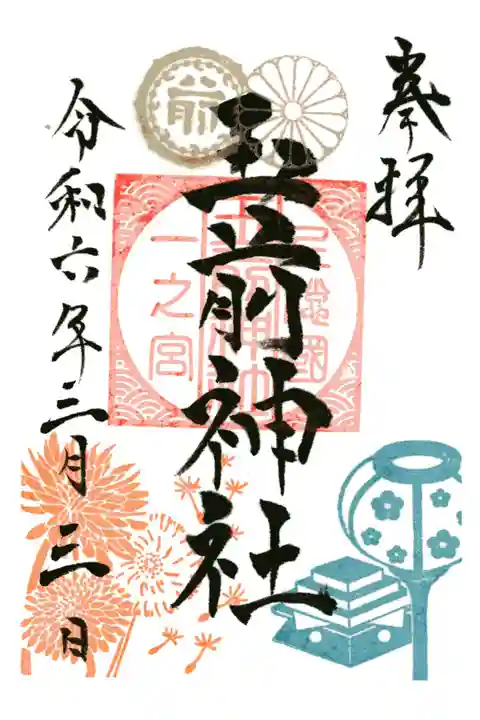 奉拝
上總國
玉前神社
一之宮
前
令和六年三月三日